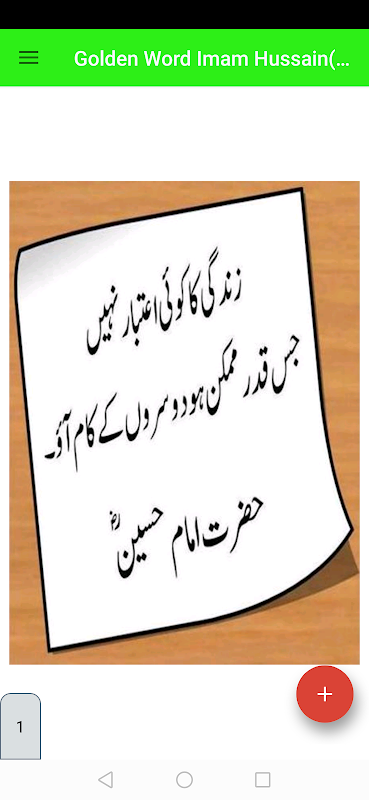 Golden Word Imam Hussain(...
زندگی کا کوئی اعتبار نہیں
جس قدر ممکن ہو دوسروں کے کام آؤ۔
حضرت امام حسینؓ
1